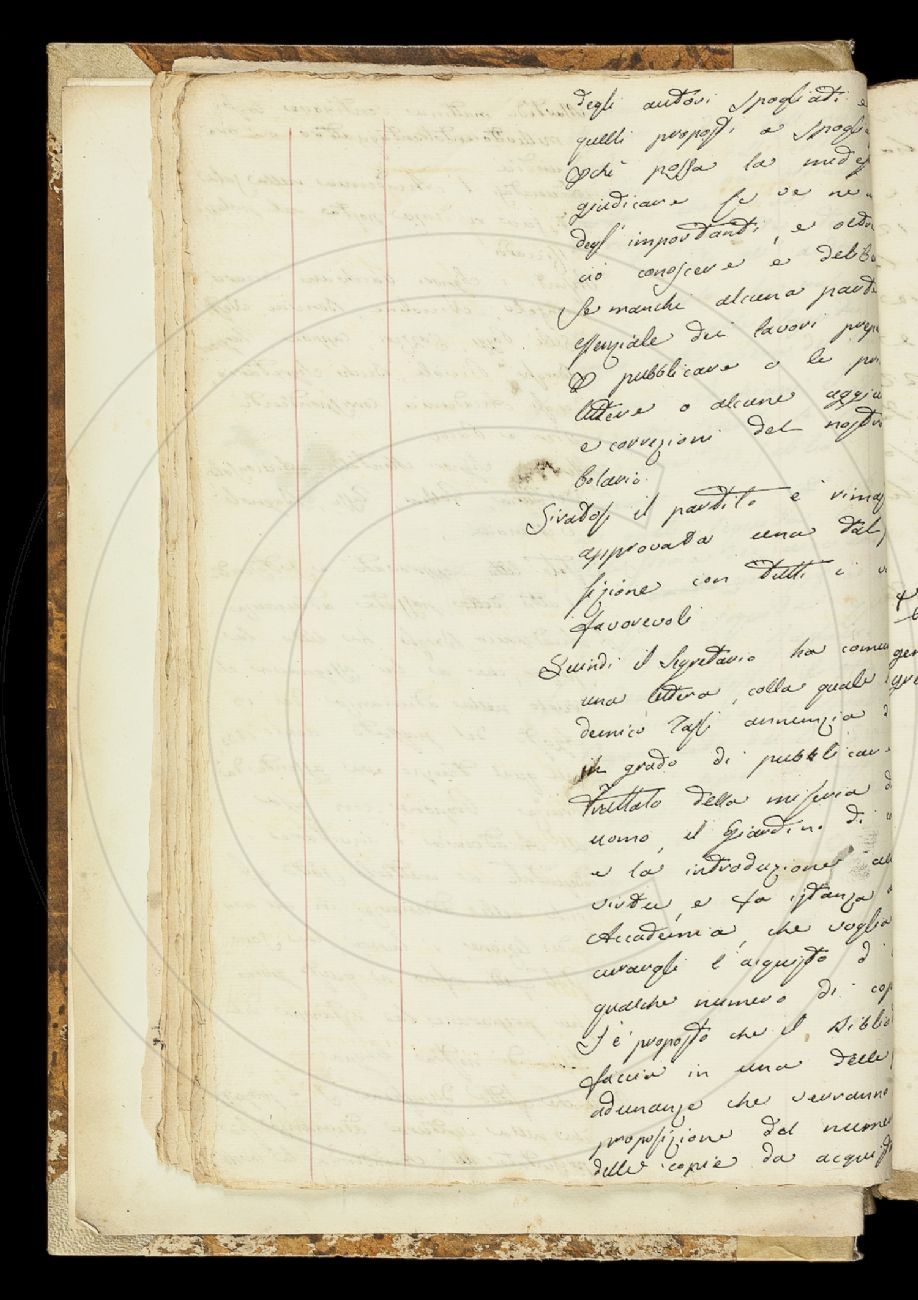 degli autori spogliati e
quelli proposti a spogli
possa la medes
giudicare se ve ne
degl' importanti, e oltre
ciò conoscere e delib
se manchi alcuna parte
essenziale dei lavori prep
pubblicare o le pr
lettere o alcune aggiu
e correzioni del nostr
bolario.
Giratosi il partito è rimas
approvata una tal
sizione con tutti i v
favorevoli
Quindi il Segretario ha comu
una lettera, colla quale
demico Tassi annunzia d
in grado di pubblicar
Trattato della miseria d
uomo, il Giardin. di
e la introduzione al
virtù, e fa istanza
Accademia, che voglia
curargli l'acquisto d
qualche numero di cop
S'è proposto che il Biblio
faccia in una delle
adunanze che verranno
proposizione del nume
delle copie da acquist
ger
gre